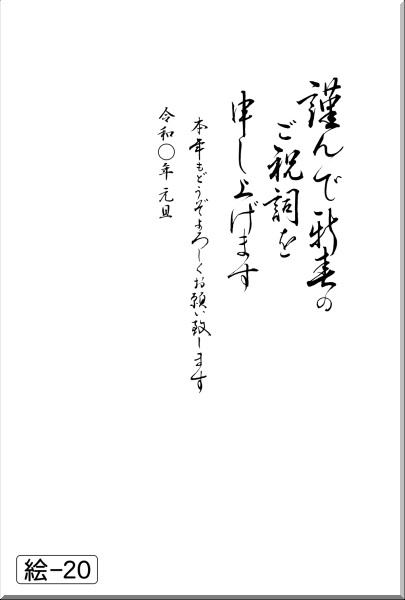 謹んで新春の
ご祝詞を
申し上げます
本年もどうぞよろしくお願い致します
令和〇年 元旦
絵-20